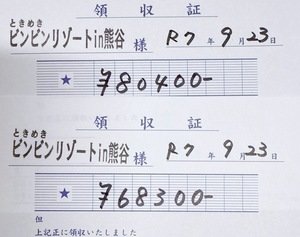 領収証
ときめき
ピンピンリゾートin熊谷 様 R7年9月23日
★ ¥80400-
領収証
ときめき
ピンピンリゾートin熊谷 様 R7年9月23日
★ ¥68300-
但
上記正に領収いたしました